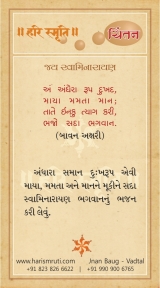 ॥ હરિ સ્મૃતિ ॥
ચિંતન
જય સ્વામિનારાયણ
અં અંધેરા રૂપ દુઃખદ,
માયા મમતા માન;
તાતે ઈનકુ ત્યાગ કરી,
ભજો સદા ભગવાન.
(બાવન અક્ષરી)
અંધારા સમાન દુઃખરૂપ એવી
માયા, મમતા અને માનને મૂકીને સદા
સ્વામિનારાયણ ભગવાનનું ભજન
કરી લેવું.
www.harismruti.com
+91 823 826 6622
Jnan Baug - Vadtal
+91 990 900 6765